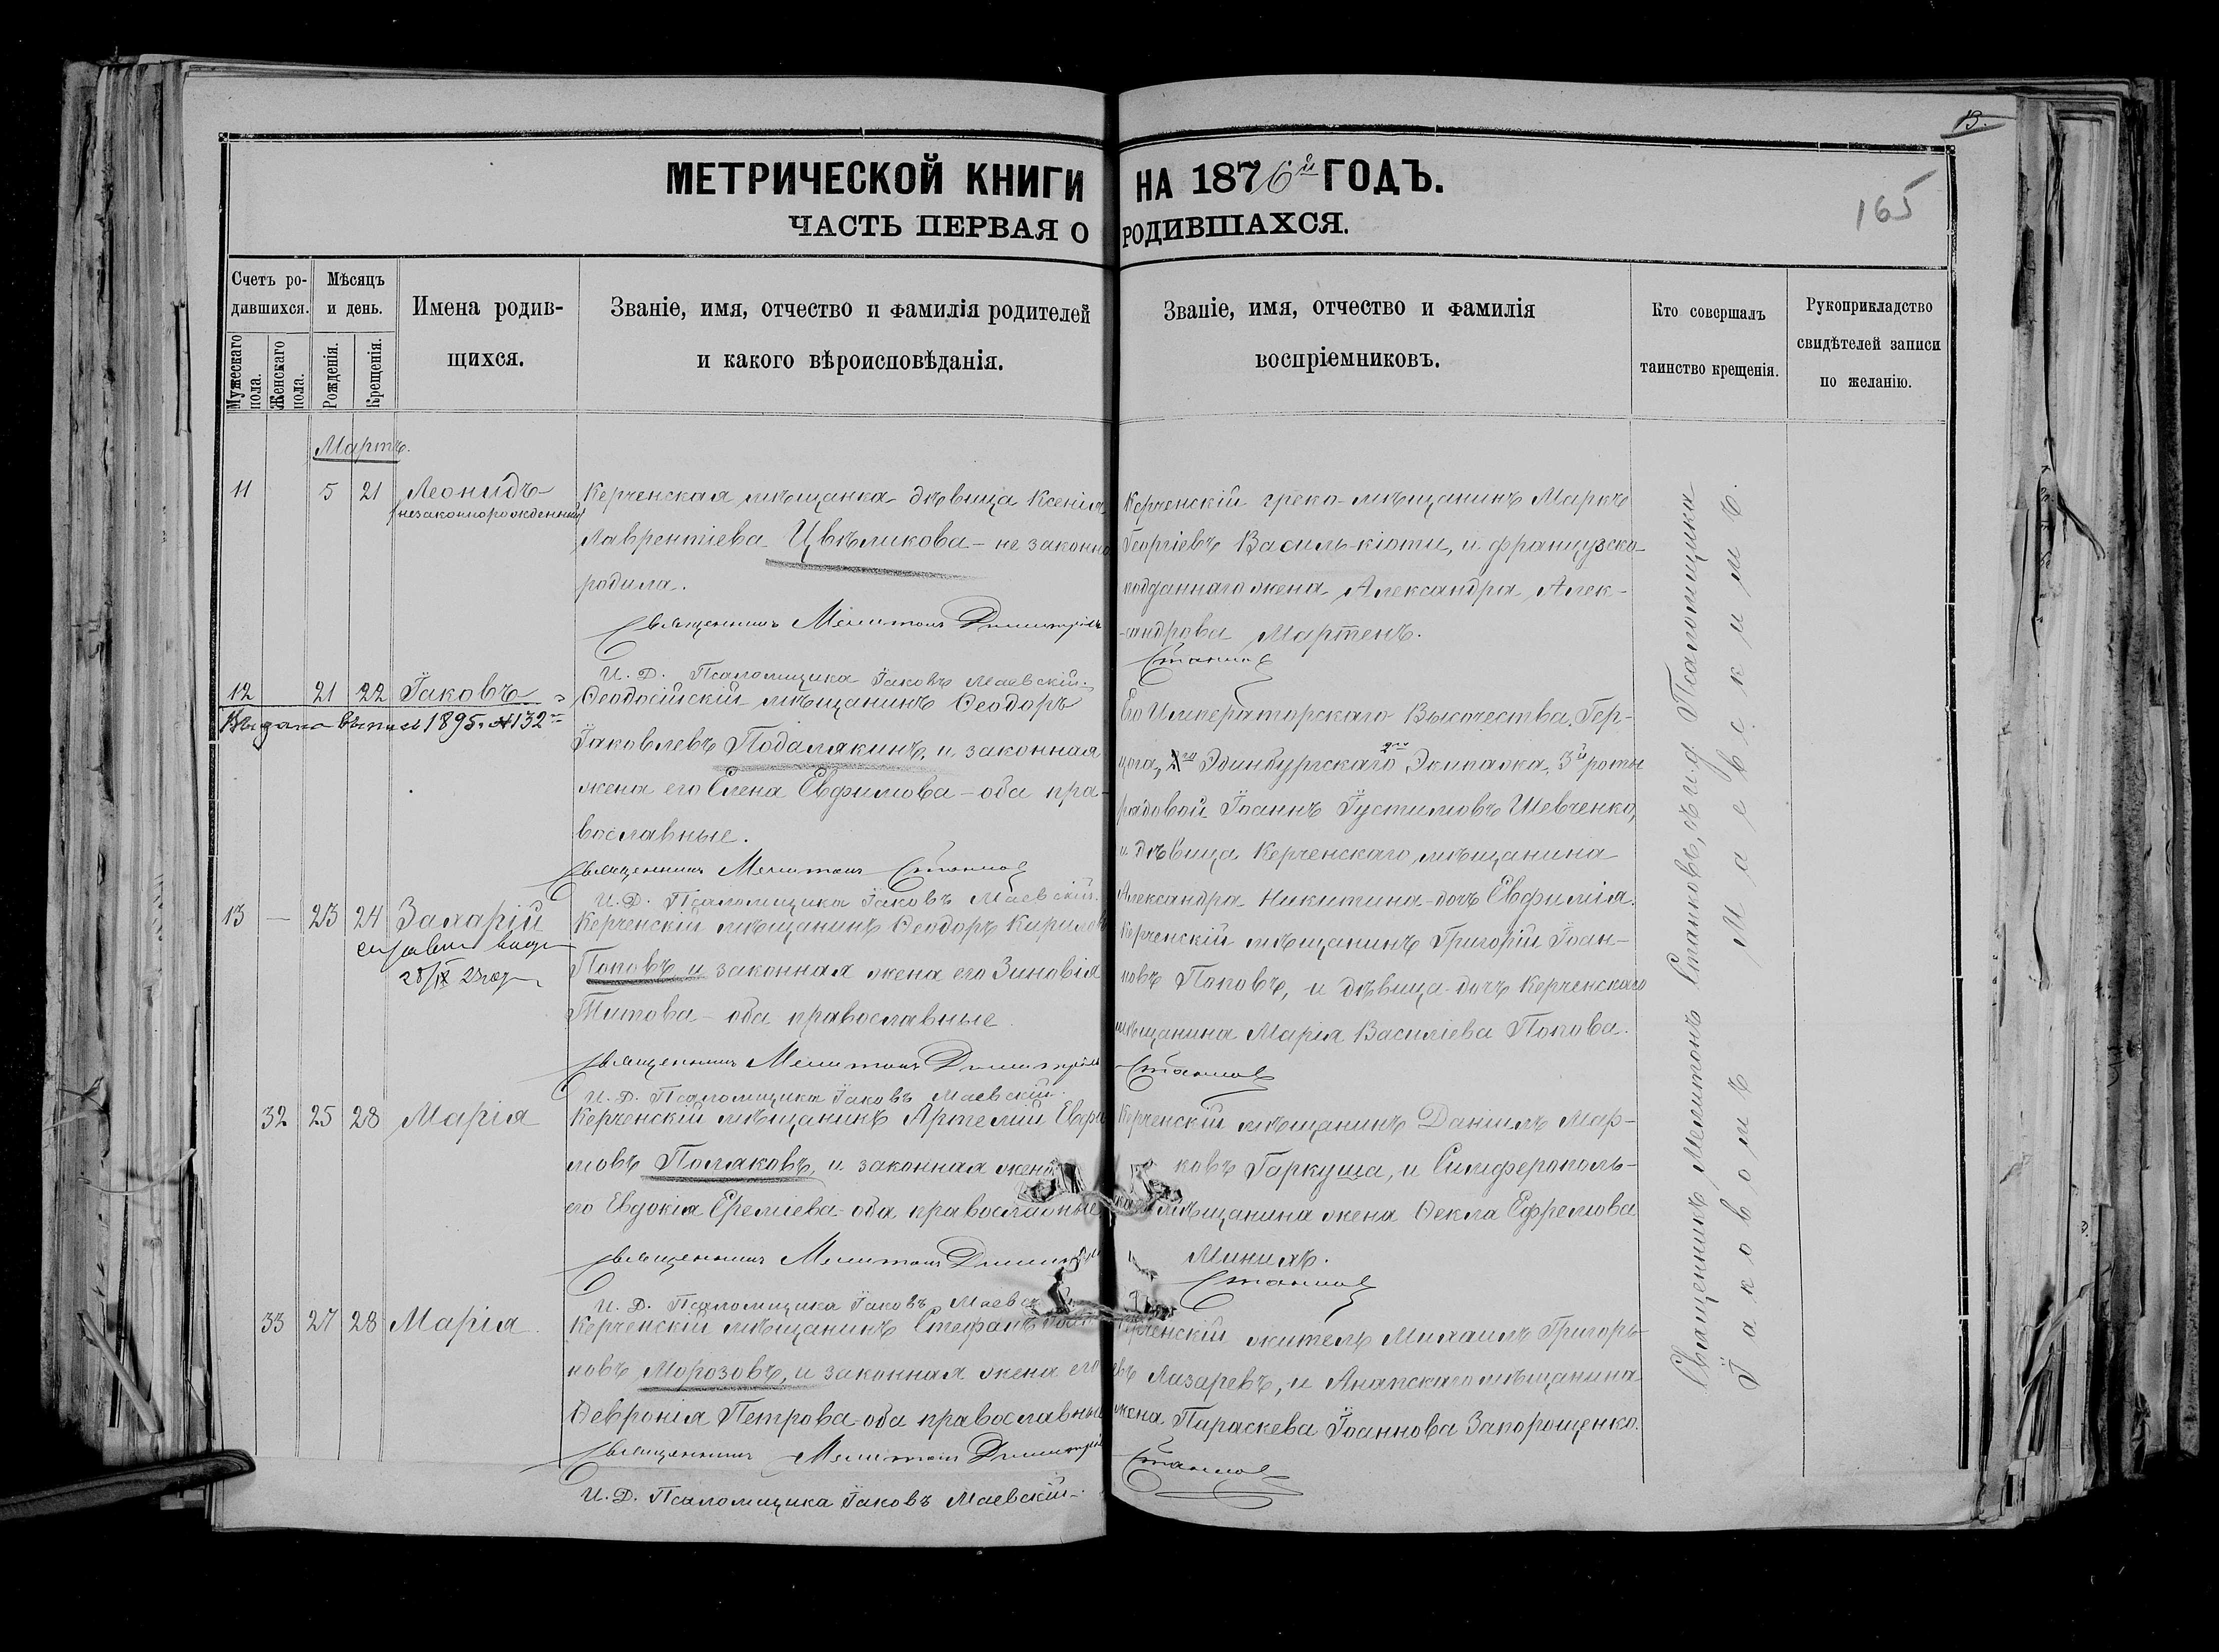 13.
165
МЕТРИЧЕСКОЙ КНИГИ НА 1876й ГОДЪ.
ЧАСТЬ ПЕРВАЯ О РОДИВШАХСЯ.
Счетъ ро-
дившихся.
Мужескаго пола.
Женскаго пола.
Мѣсяцъ
и день.
Рожденія.
Крещенія.
Имена родив-
щихся.
Званіе, имя, отчество и фамилія родителей
и какого вѣроисповѣданія.
Званіе, имя, отчество и фамилія
воспріемниковъ.
Кто совершалъ
таинство крещенія.
Рукоприкладство
свидѣтелей записи
по желанію.
Мартъ.
11 5 21 Леонидъ
незаконнорожденный
Керченская мѣщанка дѣвица Ксенія
Лаврентіева Цвѣликова - не законно
родила.
Священникъ Мелитонъ Димитріевъ
И. Д. Псаломщика Іаковъ Маевскій.
Керченскій греко-мѣщанинъ Маркъ
Георгіевъ Василь-кіоти, и французско-
подданнаго жена Александра Алек-
-сандрова Мартенъ.
Станковъ
12 21 22 Іаковъ
Выдана выпись 1895 г. №132
Ѳеодосійскій мѣщанинъ Ѳеодоръ
Іаковлевъ Подалякинъ, и законная
жена его Елена Евфимова - оба пра-
вославные.
Священникъ Мелитонъ Станковъ
И. Д. Псаломщика Іаковъ Маевскій.
Его Императорскаго Высочества, Гер-
цога, Эдинбургскаго 2го Экипажа, 3й роты
рядовой Іоаннъ Іустимовъ Шевченко,
и дѣвица Керченскаго мѣщанина
Александра Никитина - дочь Евфимія.
13 — 23 24 Захарій
28/IX 23 год
Керченскій мѣщанинъ Ѳеодоръ Кириловъ
Поповъ и законная жена его Зиновія
Титова - оба православные
Священникъ Мелитонъ Димитріевъ
И. Д. Псаломщика Іаковъ Маевскій.
Керченскій мѣщанинъ Григорій Іоан-
новъ Поповъ, и дѣвица дочь Керченскаго
мѣщанина Марія Василіева Попова.
Станковъ
32 25 28 Марія
Керченскій мѣщанинъ Артемій Евфи
мовъ Поляковъ, и законная жена
его Евдокія Ереміева - оба православные
Священникъ Мелитонъ Димитріевъ
И. Д. Псаломщика Іаковъ Маевскій
Керченскій мѣщанинъ Даніилъ Мар-
ковъ Гаркуша, и Симферополь-
мѣщанина жена Ѳекла Ефремова
Минихъ.
Станковъ
33 27 28 Марія
Керченскій мѣщанинъ Стефанъ Іоан
новъ Морозовъ, и законная жена его
Ѳевронія Петрова - оба православные
Священникъ Мелитонъ Димитріевъ
И. Д. Псаломщика Іаковъ Маевскій.
Керченскій житель Михаилъ Григорь-
евъ Лазаревъ, и Анапскаго мѣщанина
жена Параскева Іоаннова Запорощенко.
Станковъ
Священникъ Мелитонъ Станковъ, съ и. д. Псаломщика
Іаковомъ Маевскимъ.